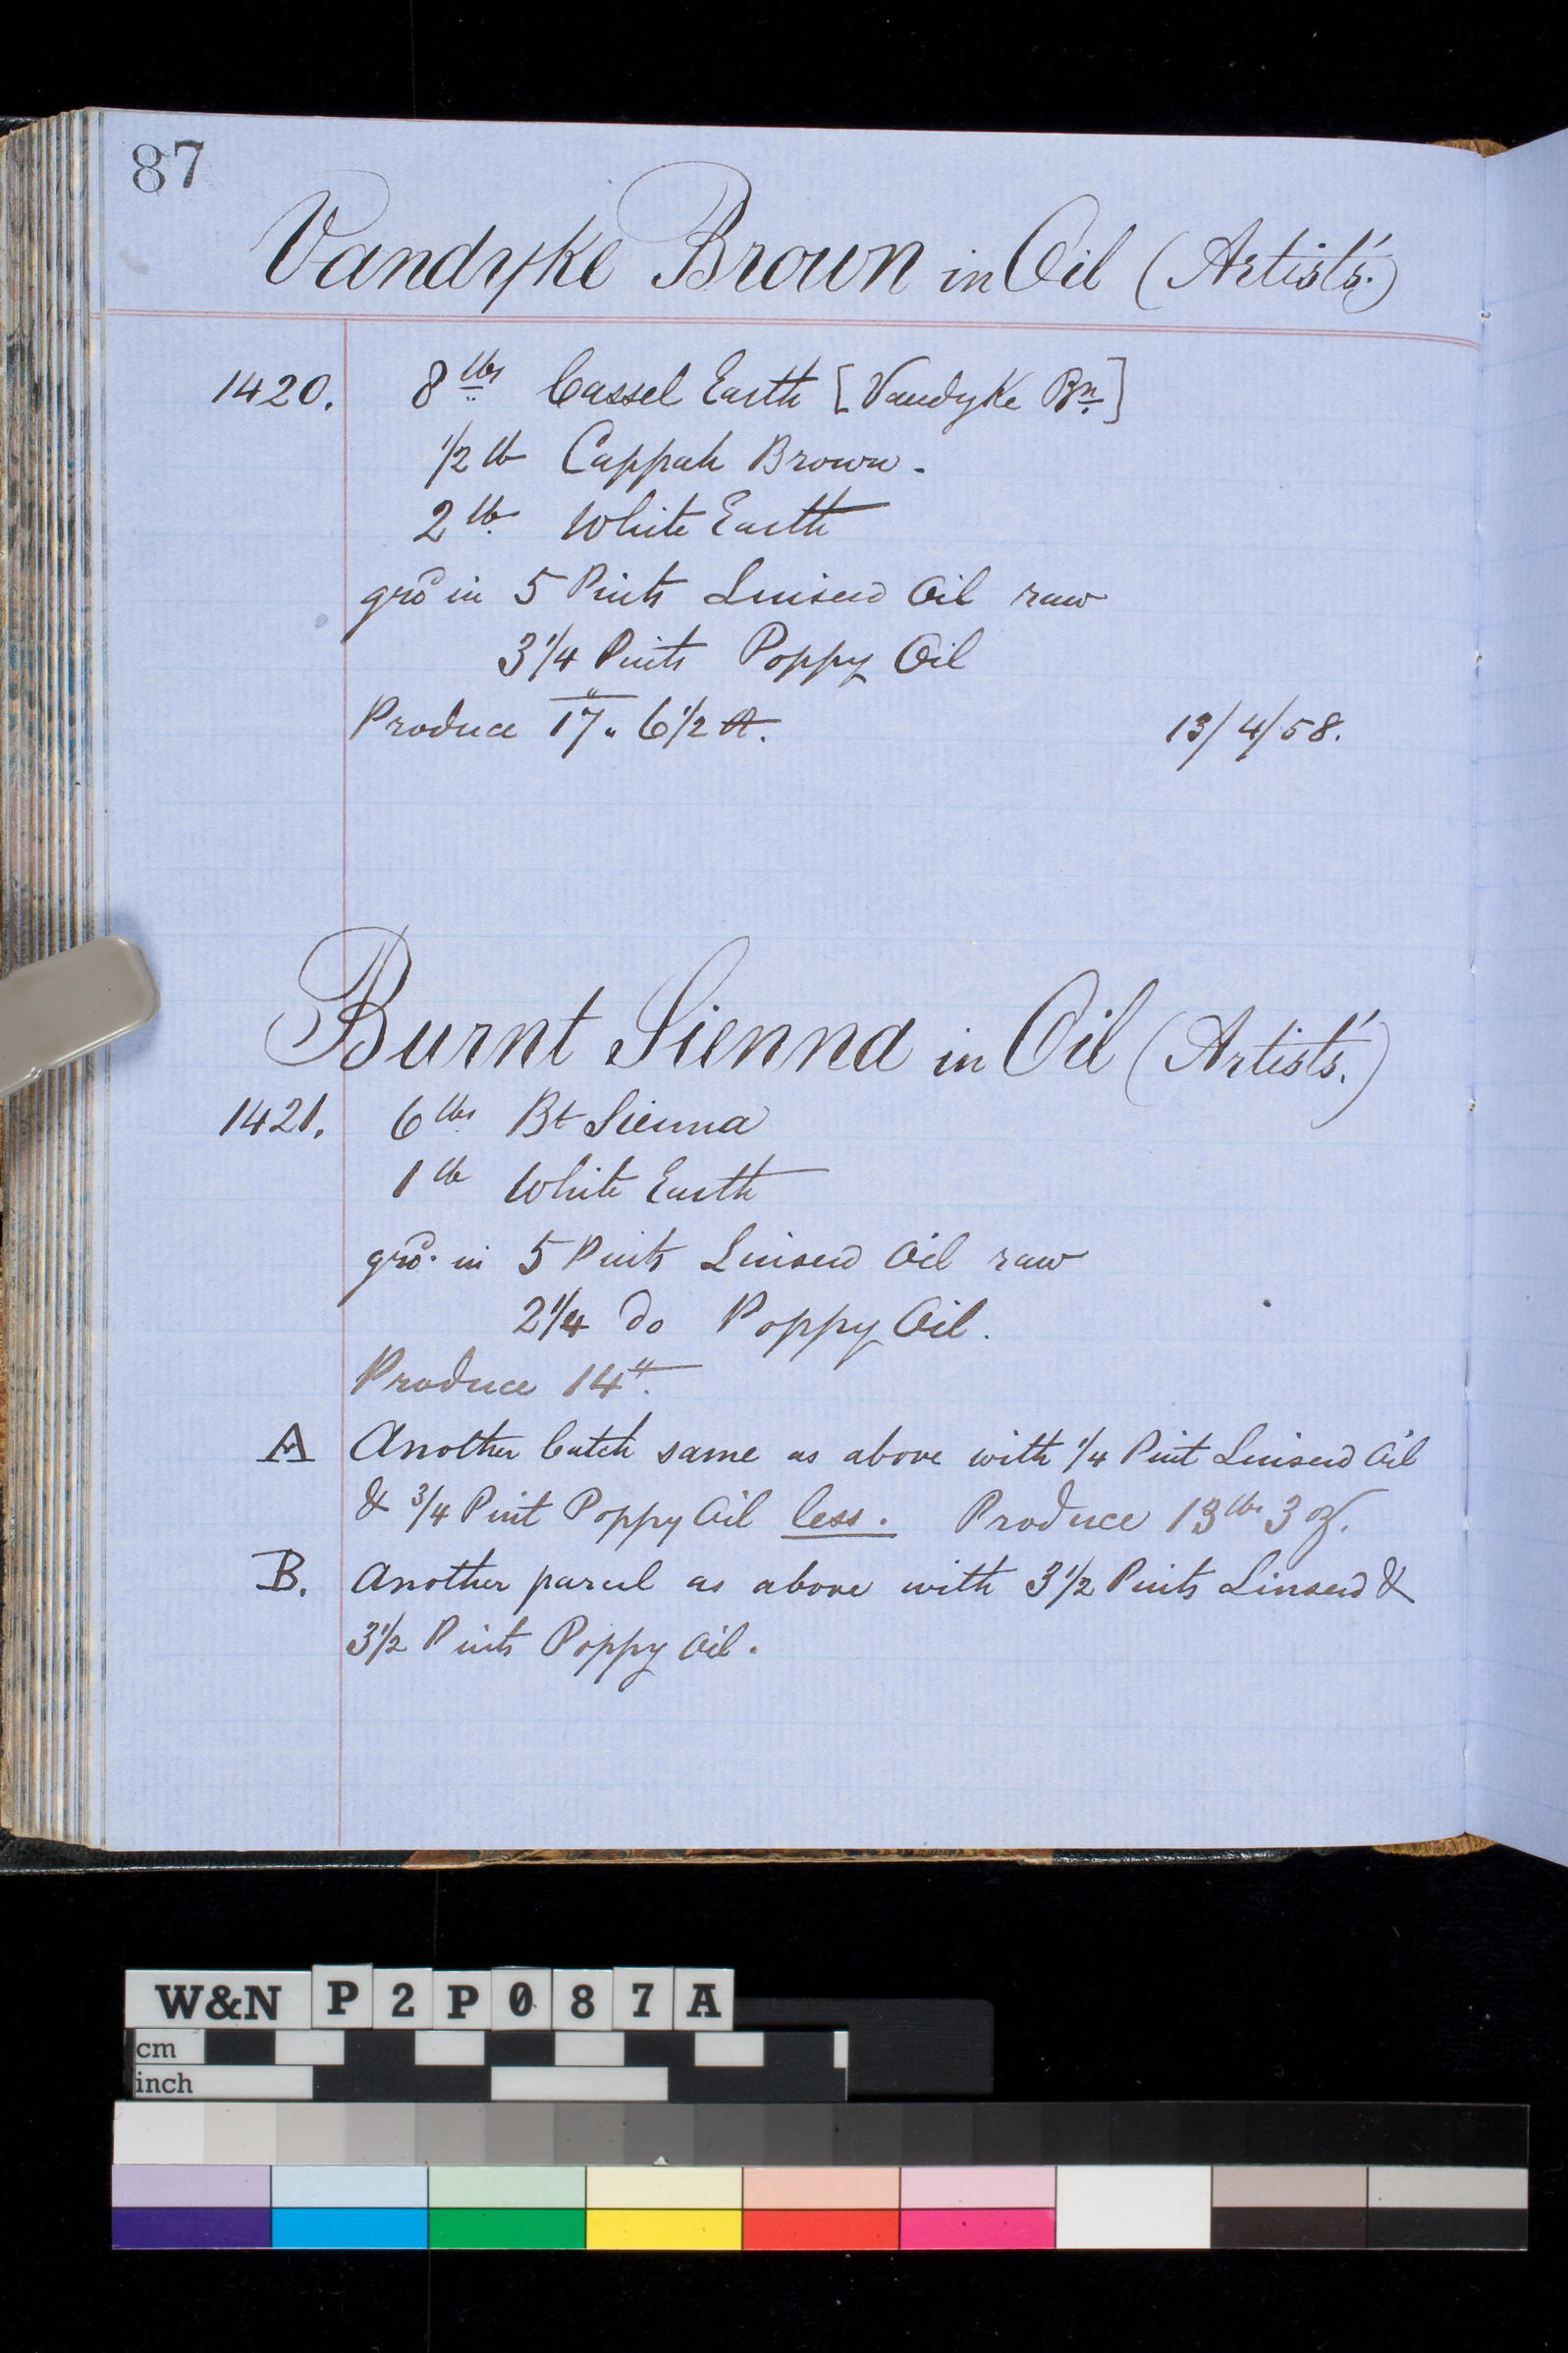 87
Vandyke Brown in Oil (Artists'.)
1420. 8 lbs Cassel Earth [Vandyke Bn.]
1/2 lb Cappah Brown.
2 lb White Earth
grd in 5 Pints Linseed Oil raw
3 1/4 Pints Poppy Oil
Produce 17 " 6 1/2
13/4/58.
Burnt Sienna in Oil (Artists'.)
1421. 6 lbs Bt Sienna
1 lb White Earth
grd. in 5 Pints Linseed Oil raw
2 1/4 do Poppy Oil.
Produce 14 ".
A Another batch same as above with 1/4 Pint Linseed Oil
& 3/4 Pint Poppy Oil less. Produce 13 lbs 3 oz.
B. Another parcel as above with 3 1/2 Pints Linseed &
3 1/2 Pints Poppy Oil.
W&N P2P087A
cm
inch